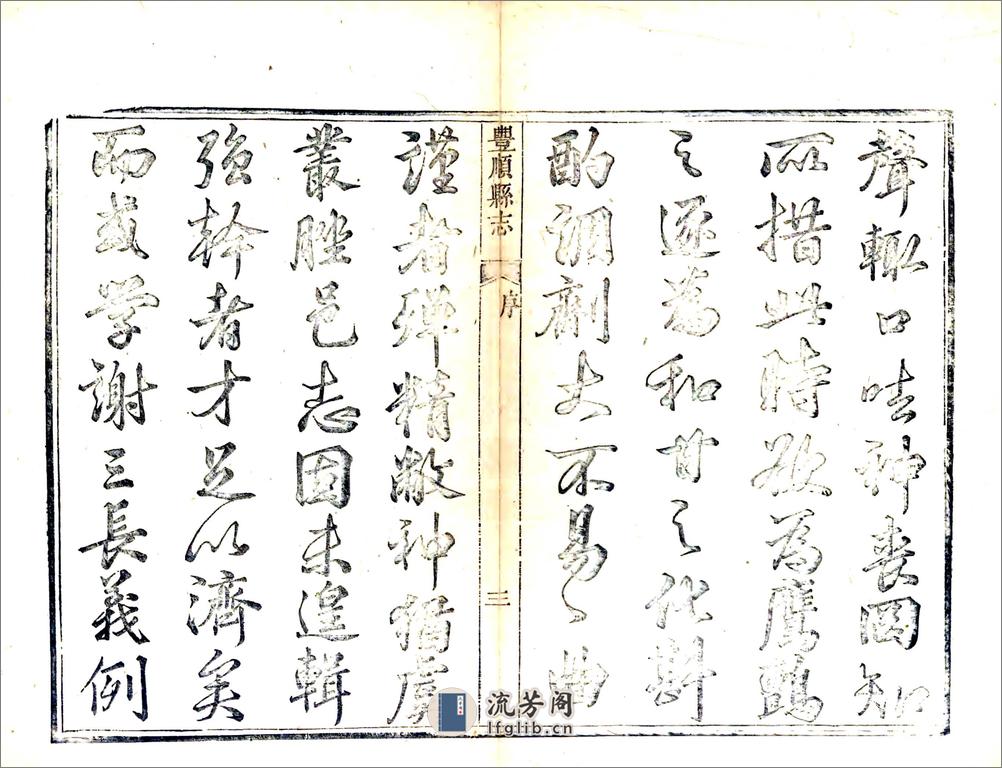 聲輒口呿神喪罔知
所措此時欲為鷹鸇
之逐為和甘之化斟
酌調劑大不易々曲
豐順縣志
序
三
謹者殫精敝神猶虞
叢脞邑志固未遑輯
強幹者才足以濟矣
而或學謝三長義例
流芳阁
lfglib.cn